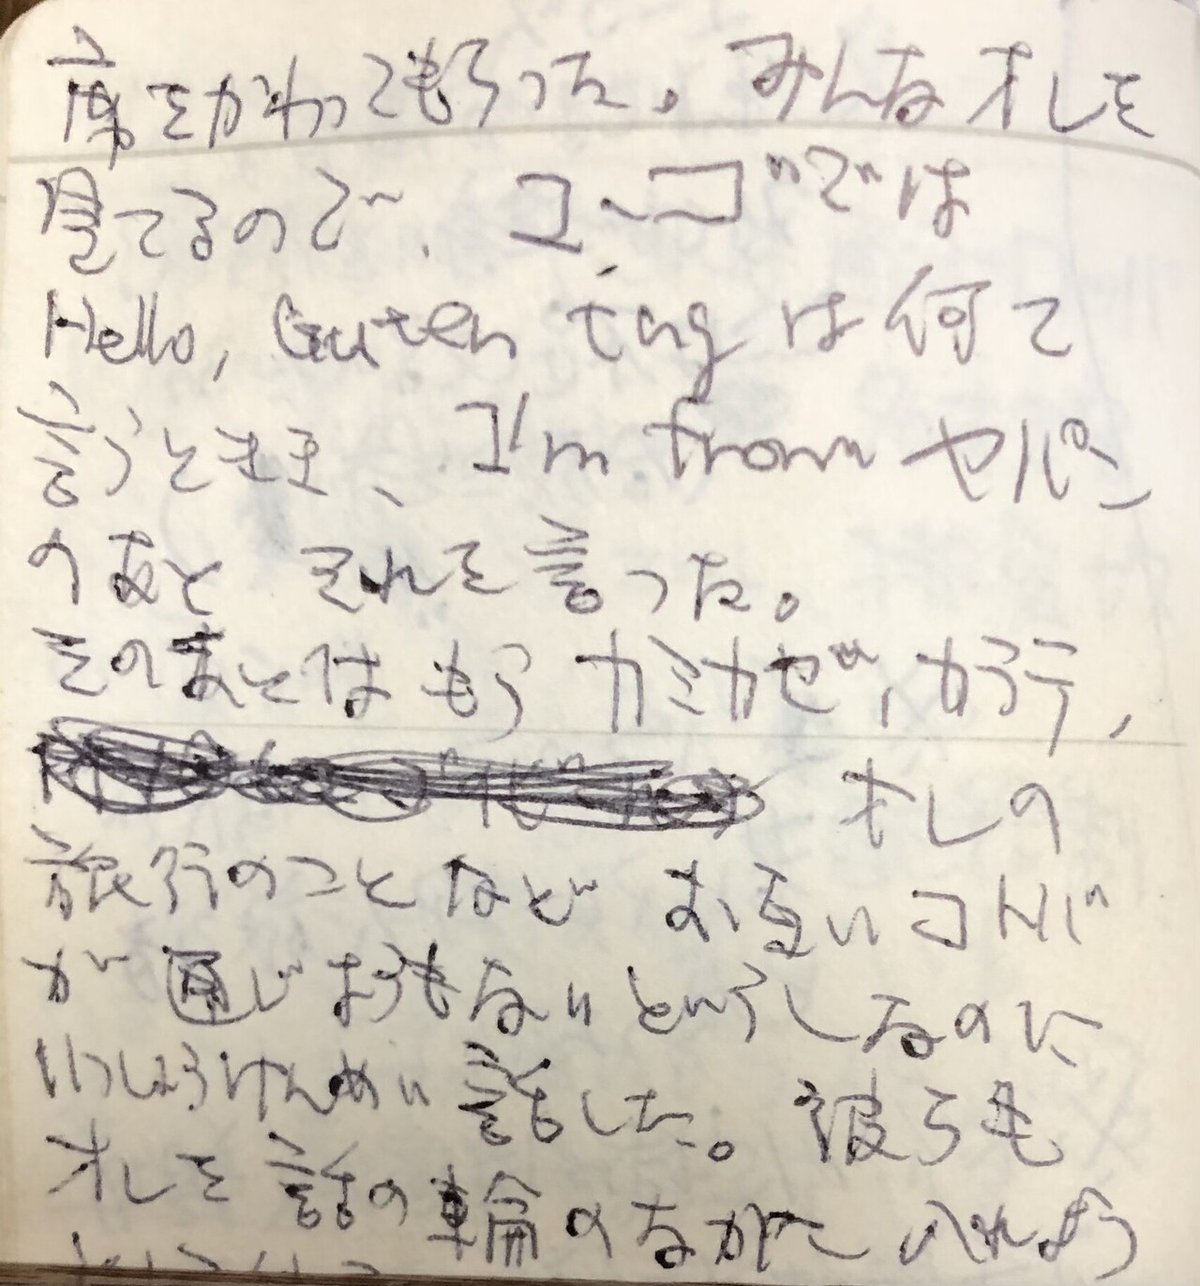 席をかわってもらった。みんなオレを
見てるので、ユーゴでは
Hello, Guten tag は何て
言うときき、I'm from ヤパン
のあと それを言った。
そのあとはもう カミカゼ、カラテ、
オレの
旅行のことなど お互いコトバ
が通じ
いっしょうけんめい話した。彼らも
オレを話の輪のなかに入れよう